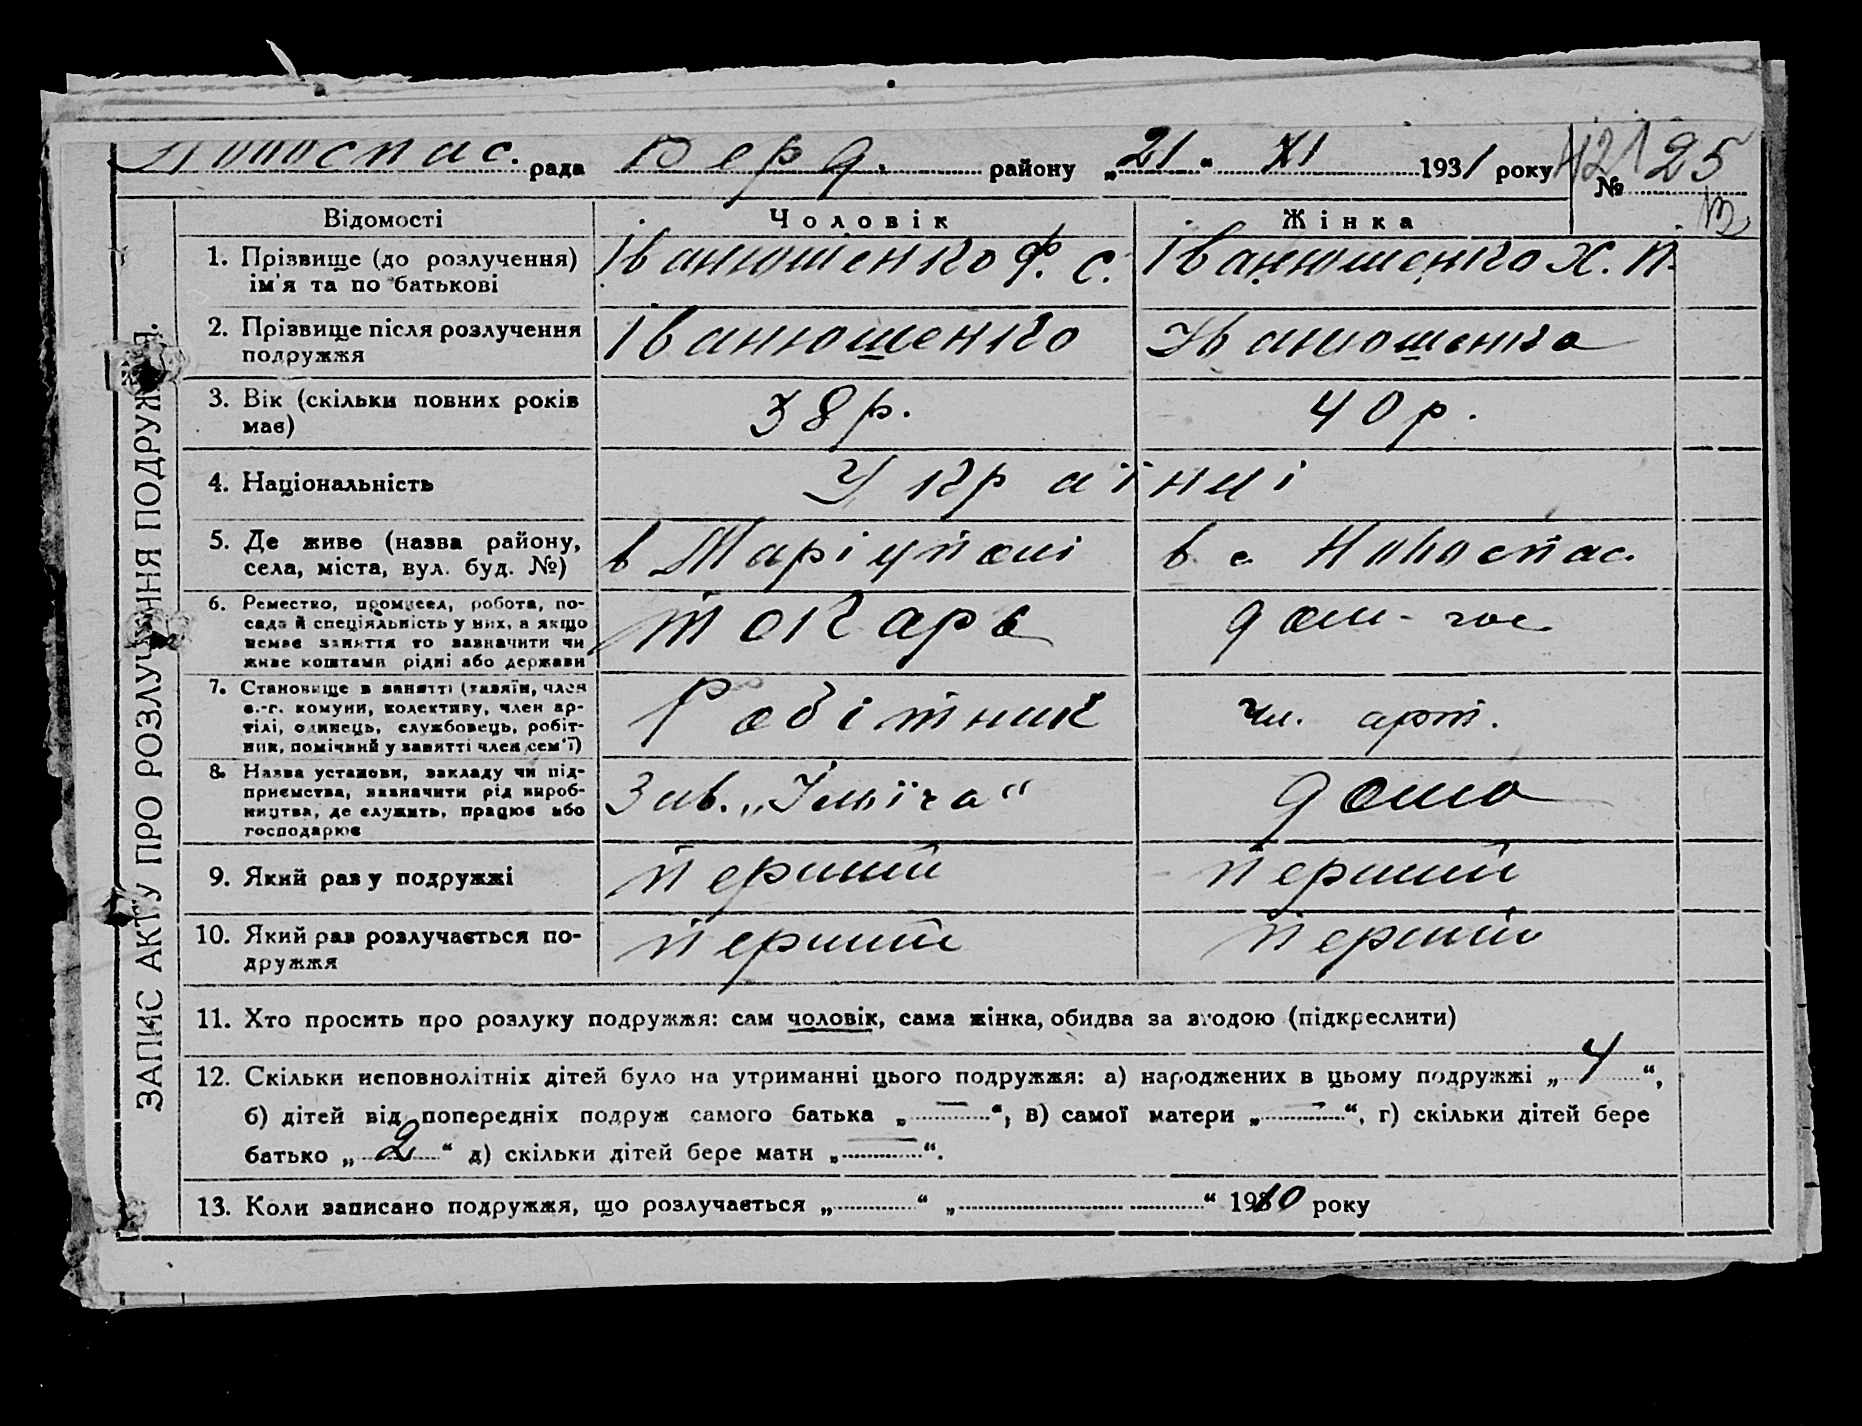 Новоспас. рада Берд. району „21“ XI 1931 року № 25
421
ЗАПИС АКТУ ПРО РОЗЛУЧЕННЯ ПОДРУЖЖЯ.
Відомості Чоловік Жінка
1. Прізвище (до розлучення) ім'я та по батькові Іванюшенко Ф. С. Іванюшенко Х. П.
2. Прізвище після розлучення подружжя Іванюшенко Іванюшенко
3. Вік (скільки повних років має) 38 р. 40 р.
4. Національність Українці
5. Де живе (назва району, села, міста, вул. буд. №) в Маріуполі в с Новоспас.
6. Ремество, промисел, робота, посада й спеціяльність у них, а якщо немає заняття то зазначити чи живе коштами рідні або держави токарь дом-гос
7. Становище в занятті (хазяїн, член с.-г. комуни, колективу, член артілі, одинець, службовець, робітник, помічний у занятті член сем'ї) Робітник чл. арт.
8. Назва установи, закладу чи підприємства, зазначити рід виробництва, де служить, працює або господарює Зав. „Ілліча“ дома
9. Який раз у подружжі перший перший
10. Який раз розлучається подружжя перший перший
11. Хто просить про розлуку подружжя: сам чоловік, сама жінка, обидва за згодою (підкреслити)
12. Скільки неповнолітніх дітей було на утриманні цього подружжя: а) народжених в цьому подружжі „4“,
б) дітей від попередніх подруж самого батька „—“, в) самої матери „—“, г) скільки дітей бере
батько „2“ д) скільки дітей бере мати „—“.
13. Коли записано подружжя, що розлучається „ “ „ “ 1910 року